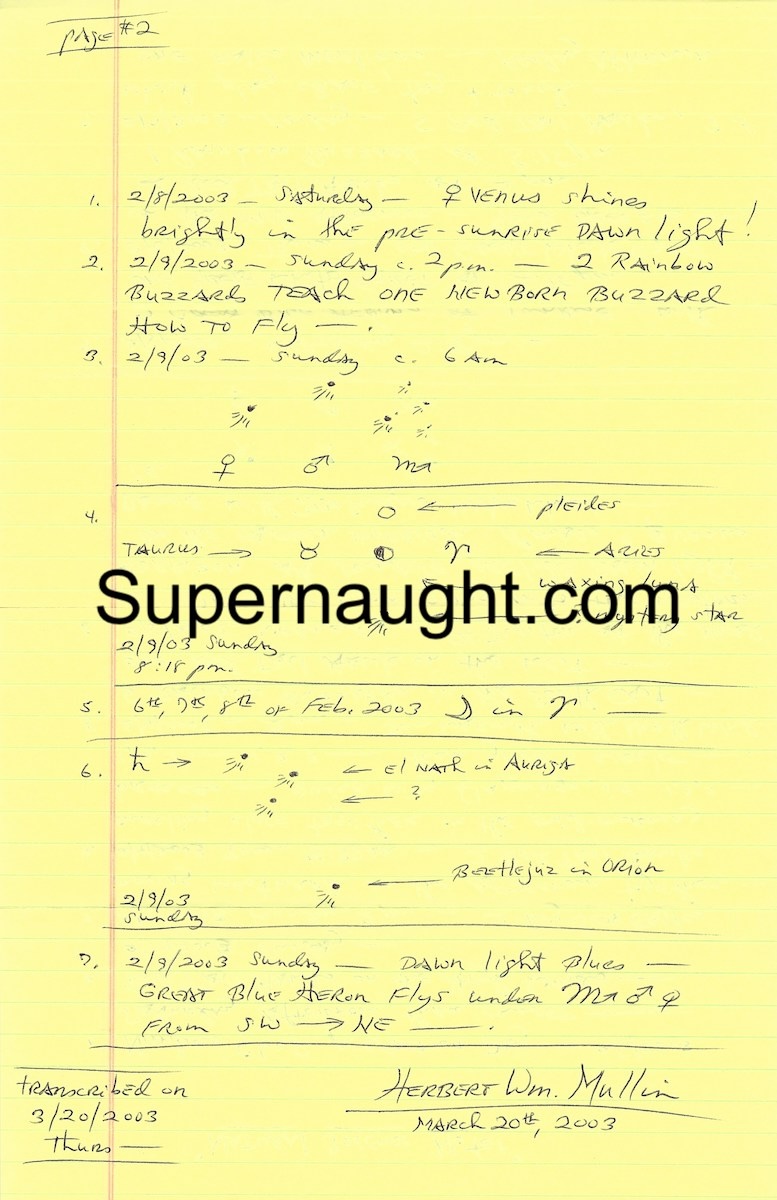 page #2
1. 2/8/2003 – Saturday – ♀ Venus shines
brightly in the pre-sunrise Dawn light!
2. 2/9/2003 – Sunday c. 2 p.m. – 2 Rainbow
Buzzards Teach one New Born Buzzard
How To Fly —.
3. 2/9/03 – Sunday c. 6 Am
♀ ♂ ♏
4. ← pleides
TAURUS → ♉ ♈ ← ARIES
← waxing luna
? mystery star
Supernaught.com
2/9/03 Sunday
8:18 pm.
5. 6th, 7th, 8th of Feb. 2003 ☽ in ♈ —
6. ♄ → ← El NATh in Auriga
← ?
← Beetlejuz in Orion
2/9/03
Sunday
7. 2/9/2003 Sunday — Dawn light Blues —
Great Blue Heron Flys under ♏ ♂ ♀
From SW → NE —.
transcribed on
3/20/2003
Thurs —
Herbert Wm. Mullin
March 20th, 2003